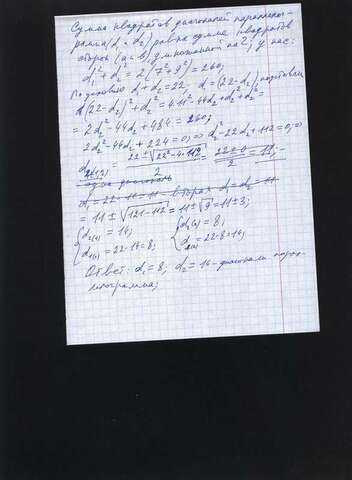 Сумма квадратов диагоналей параллелог-
рамма (d₁ и d₂) равна сумме квадратов
сторон (a и b), умноженной на 2; у нас:
d₁² + d₂² = 2(7² + 9²) = 260;
По условию d₁ + d₂ = 22; d₁ = (22 - d₂), подставим
(22 - d₂)² + d₂² = 4·11² - 44d₂ + d₂² + d₂² =
= 2d₂² - 44d₂ + 484 = 260;
2d₂² - 44d₂ + 224 = 0; ⇒ d₂² - 22d₂ + 112 = 0; ⇒
d₂₍₁,₂₎ = 22 ± √(22² - 4·112) / 2 = 22 ± 0 / 2 = 11;
одна диагональ
d₁ = 22 - 11 = 11 - вторая d₁ = d₂ = 11
= 11 ± √(121 - 112) = 11 ± √9 = 11 ± 3;
{ d₂₍₁₎ = 14; { d₂₍₂₎ = 8;
d₁₍₁₎ = 22 - 14 = 8; d₁₍₂₎ = 22 - 8 = 14;
Ответ: d₁ = 8; d₂ = 14 - диагонали парал-
лелограмма;